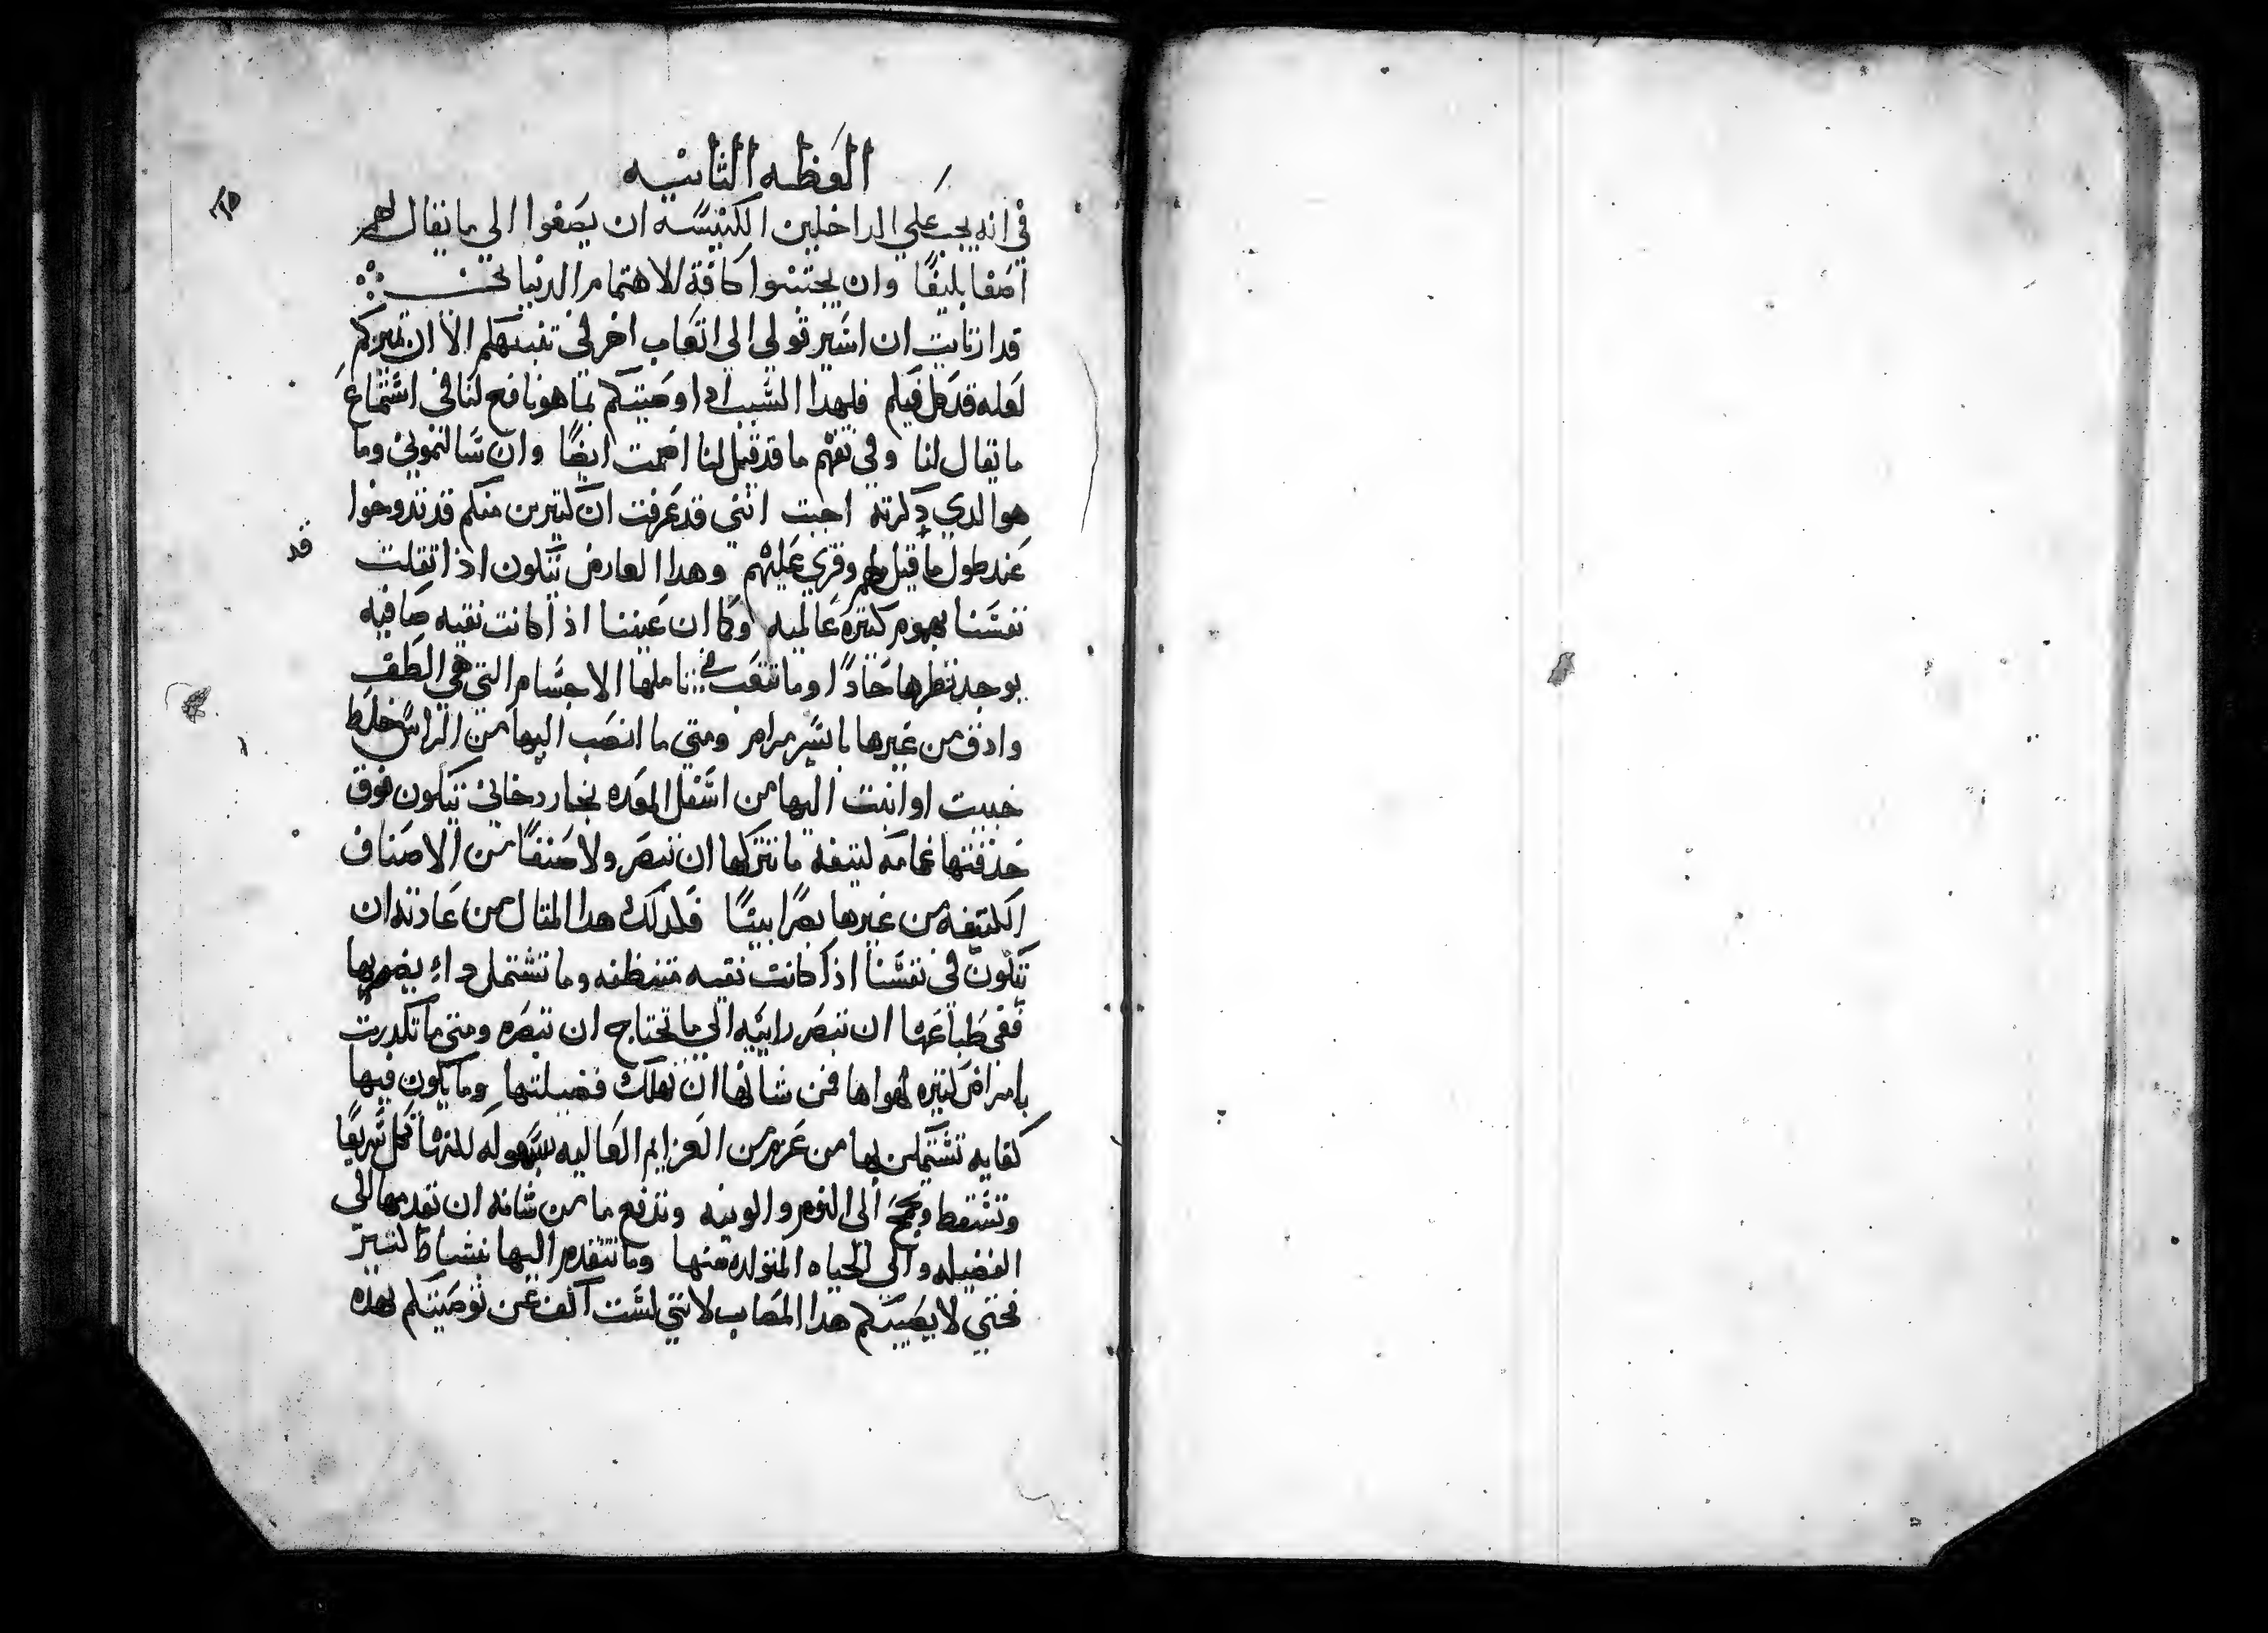 العظه الثانيه
في انه يجب علي الداخلين الكنيسه ان يصغوا الي ما يقال لهم
اصغا بليغا وان يحتسوا كافة الاهتمام الدنيا
قد ارتايت ان اشير قولي الي اتعاب اخر في تنبيهكم الا ان تميزكم
لعله قد كل فيكم فلهدا السبب اد اوصيتكم بما هو نافع لنا في استماع
ما يقال لنا وفي تفهم ما قد قيل لنا اصمت ايضا وان سالتموني وما
هو الدي دكرته اجبت انني قد عرفت ان كتيرين منكم قد تدوخوا
عند طول ما قيل لهم وقري عليهم وهدا العارض يتكون اذا تقلت
قد
نفسنا بهموم كتيره عالميه وكما ان عيننا اذا كانت نقيه صافيه
يوجد نظرها حادا وما تتعب في تاملها الاجسام التي هي الطف
وادق من غيرها بايسر مرام ومتي ما انصب اليها من الراس خلط
خبيت او انبت اليها من اسفل المعده بخار دخاني تتكون فوق
حدقتها غمامه كتيفه ما تتركها ان تبصر ولا صنفا من الاصناف
الكتيفه من غيرها بصرا بينا فلدلك هدا المتال من عادته ان
يتكون في نفسنا اذا كانت نقيه متيقظه وما تشتمل داء يضر بها
ففي طباعها ان تبصر رايه الي ما تحتاج ان تبصره ومتي ما تكدرت
بامراض كتيره فمن شانها ان تهلك فضيلتها وما يكون فيها
كفايه تشتمل بها من عزم من العزايم العاليه بسهوله لكنها تكل سريعا
وتسقط وتجمح الي النوم والونيه وتدفع ما من شانه ان تقدمها الي
الفضيله والي الحياه المتولده منها وما تتقدم اليها بنشاط كتير
فحتي لا يصيبكم هدا المصاب لانني لست اكف عن توصيتكم بهده